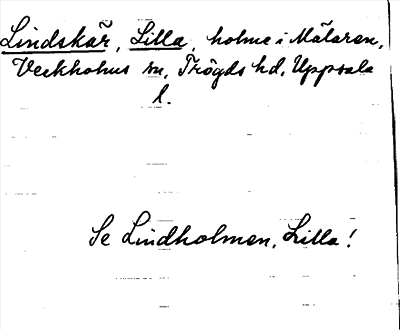 Lindskär, Lilla, holme i Mälaren,
Veckholms sn, Trögds hd, Uppsala
l.
Se Lindholmen, Lilla!